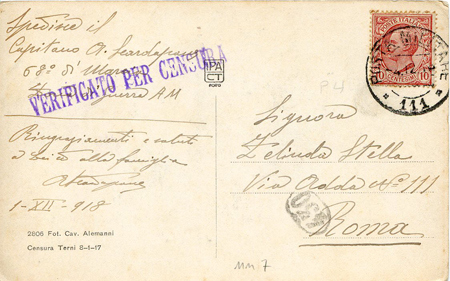 Spedisce il
Capitano A. Scardapane
68° di Marcia
Zona Guerra A M
VERIFICATO PER CENSURA
Ringraziamenti e saluti
a Lei e alla famiglia
1-XII-918
2806 Fot. Cav. Alemanni
Censura Terni 8-1-17
PACT
FOTO
POSTE ITALIANE
10
POSTA MILITARE
111
P4
Signora
Zelinda Stella
Via Adda N° 111
Roma
7